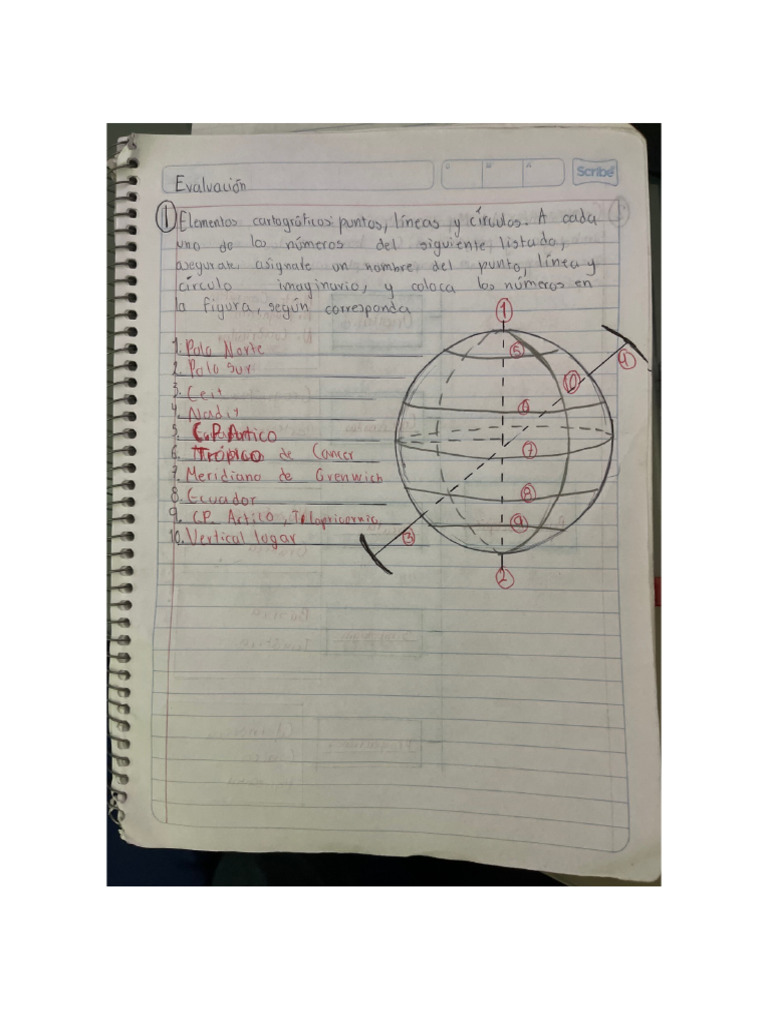 Scribe
Evaluación
1 Elementos cartográficos: puntos, líneas y círculos. A cada
uno de los números del siguiente listado,
asegurate asignate un nombre del punto, línea y
círculo imaginario, y coloca los números en
la figura, según corresponda
1. Polo Norte
2. Polo Sur
3. Cenit
4. Nadit
5. C.P. Antico
6. Trópico de Cancer
7. Meridiano de Grenwich
8. Ecuador
9. C.P. Artico, T
10. Vertical logar
1
5
4
10
6
7
8
9
3
2